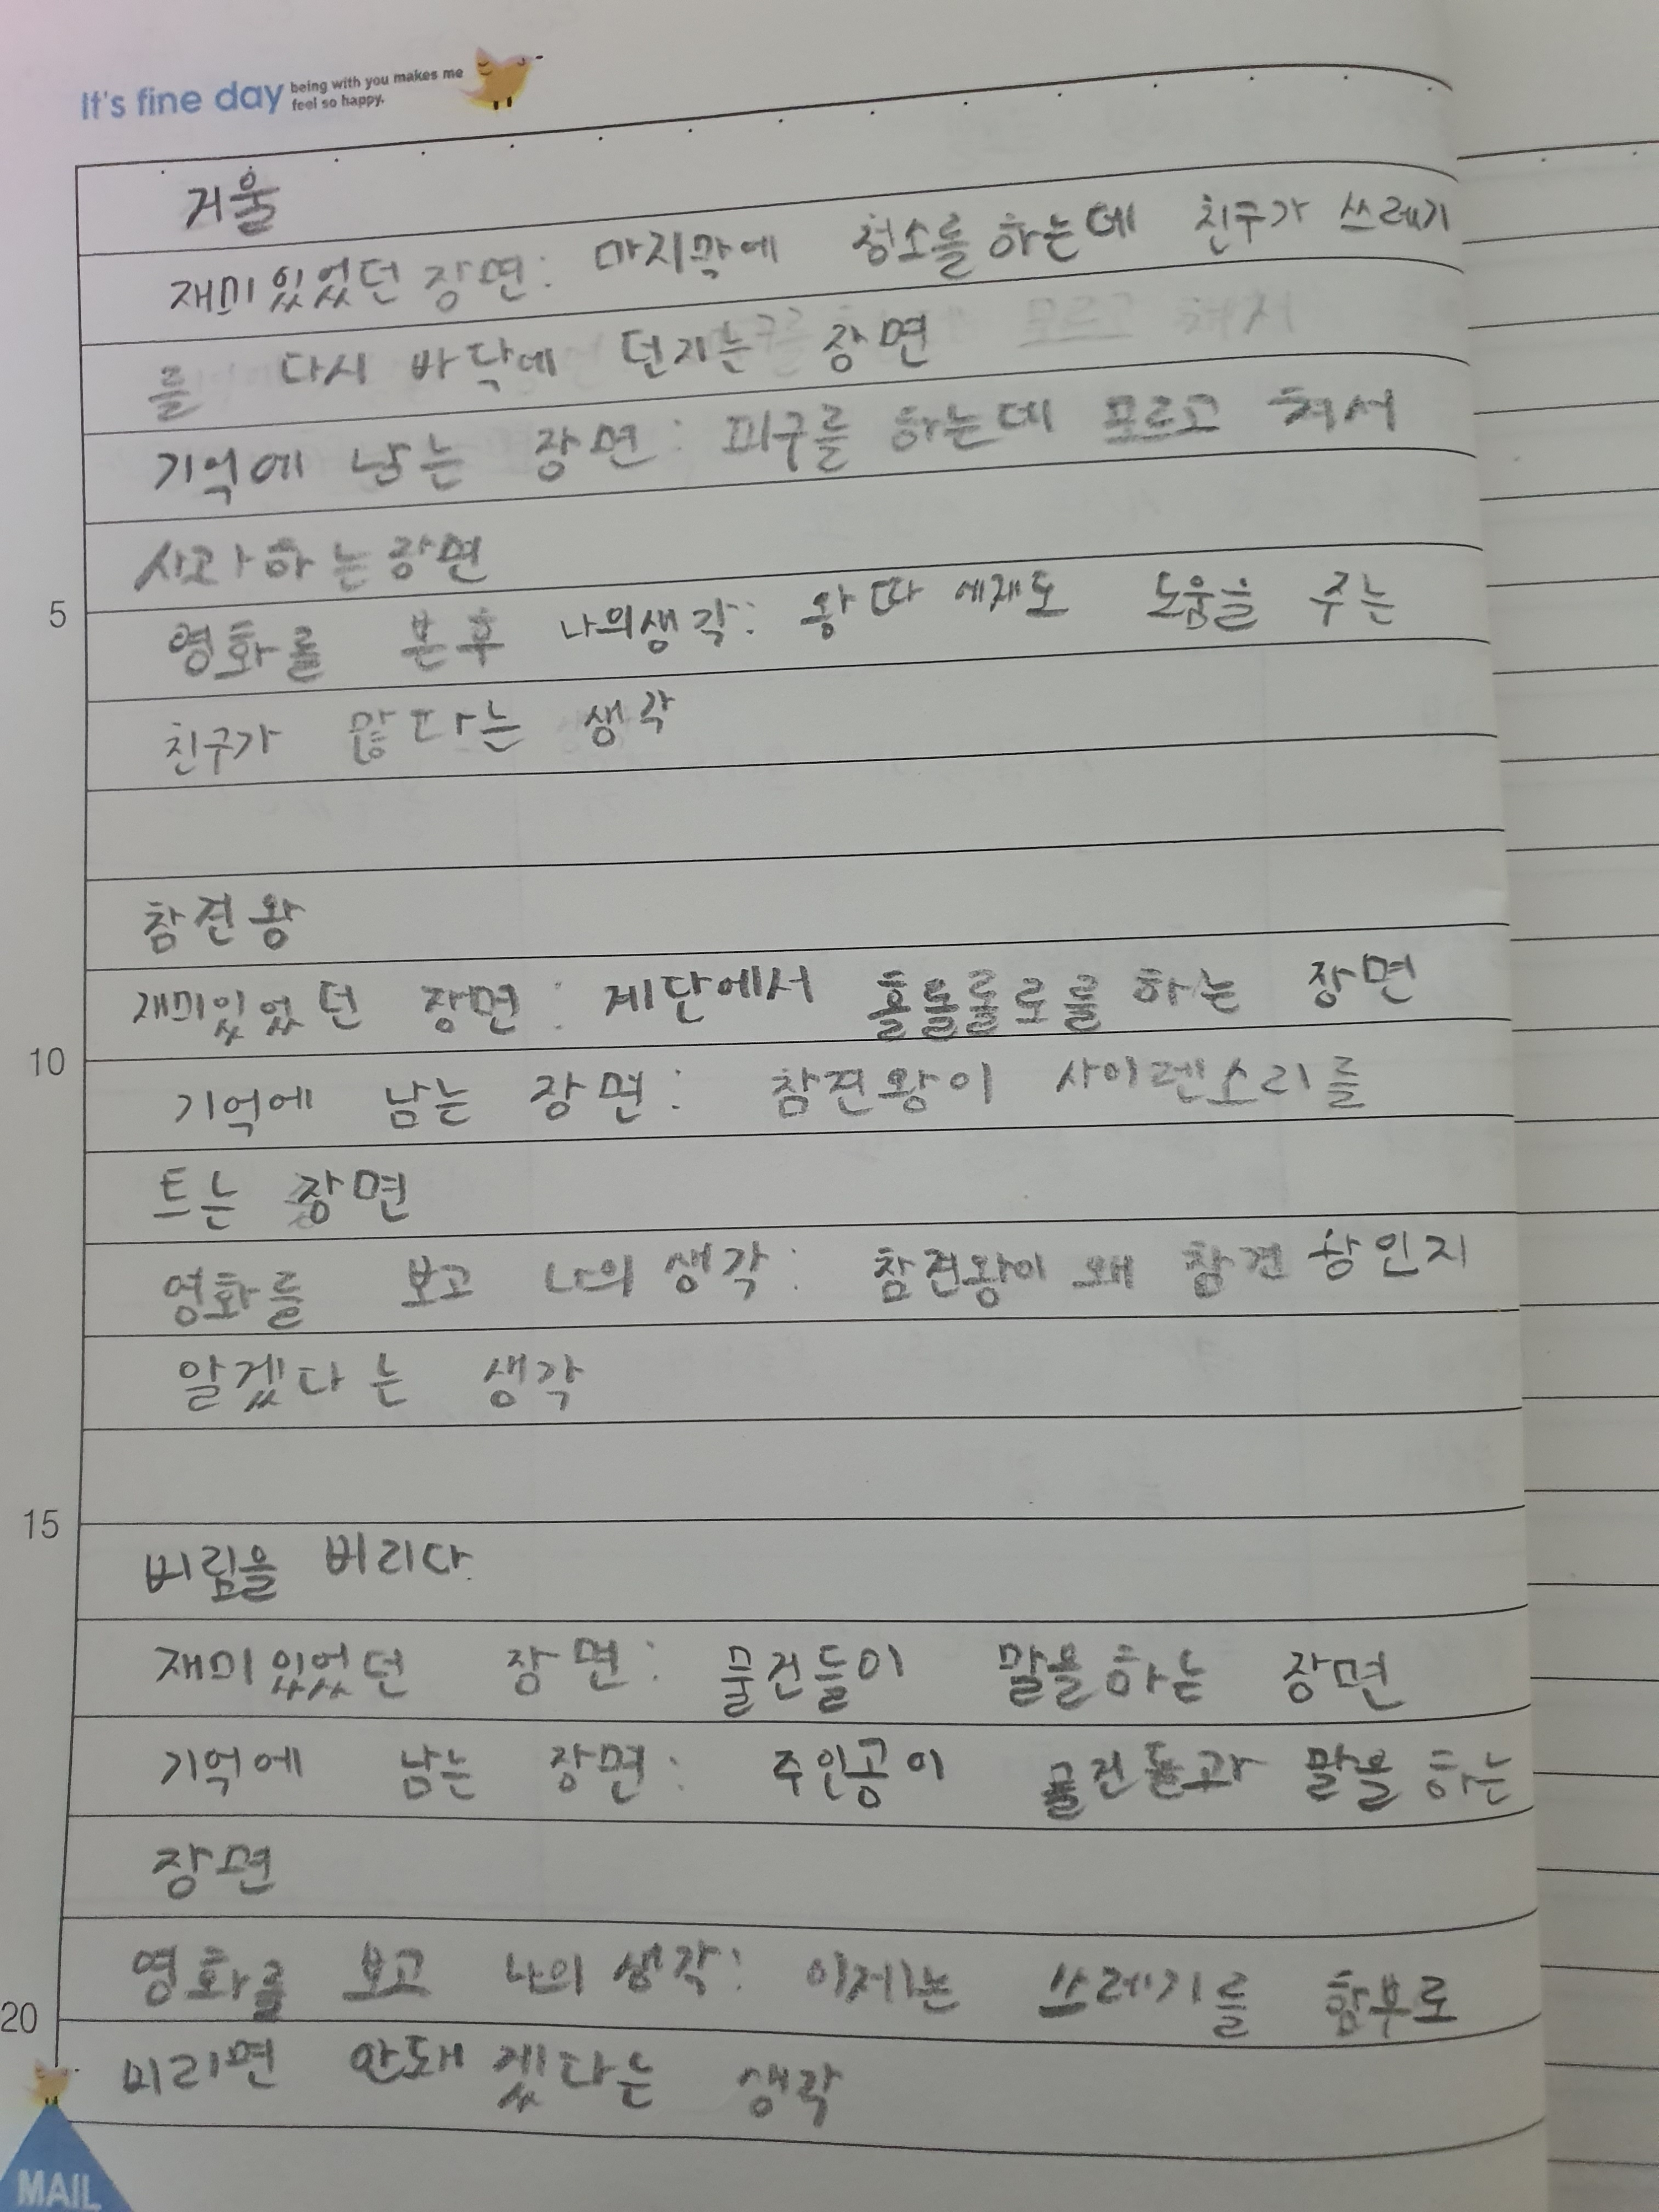 It's fine day being with you makes me feel so happy.
거울
재미있었던 장면: 마지막에 청소를 하는데 친구가 쓰레기
를 다시 바닥에 던지는 장면
기억에 남는 장면: 피구를 하는데 모르고 쳐서
사과하는장면
5
영화를 본후 나의생각: 왕따 에게도 도움을 주는
친구가 많다는 생각
참견왕
재미있었던 장면: 계단에서 홀롤롤로를 하는 장면
10
기억에 남는 장면: 참견왕이 사이렌소리를
트는 장면
영화를 보고 나의 생각: 참견왕이 왜 참견 왕인지
알겠다는 생각
15
버림을 버리다.
재미있었던 장면: 물건들이 말을하는 장면
기억에 남는 장면: 주인공이 물건들과 말을 하는
장면
영화를 보고 나의 생각: 이제는 쓰레기를 함부로
20
버리면 안돼겠다는 생각
MAIL